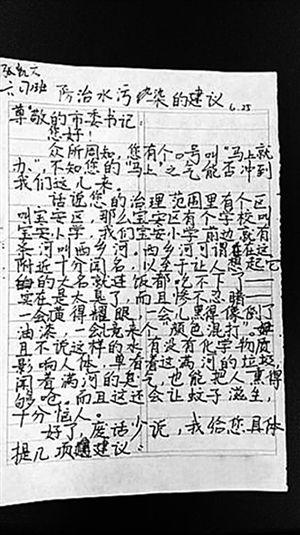 张凯文
六(7)班
防治水污染的建议
6.25
尊敬的市委书记:
您好!
众所周知,您有个口号叫“马上就
办”,不知您的“马上”之气能否冲到
我们这儿来。
话说您的治理范围里有个区
叫宝安区,那么宝安区有个学校叫
宝安小学,我们宝安小学旁边就有
条河叫西乡河。西乡河可谓是在这
附近十分闻名,以至于让人想起它
的大名就连饭都吃不下了——
实在是太臭了,而且惨不忍睹——
一会黄得耀眼,一会儿黑得像倒了
油漆,一会竟来个“颜色混打”。
且不说这样的水有没有化学物质
影响人体,单看着这满河的垃圾,
闻着满河的臭气,也能把人熏得
够呛。而且这还会让蚊子滋生,
十分恼人。
好了,废话少说,我给您具体
提几项建议: